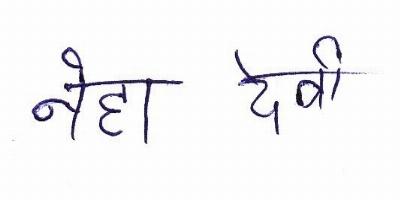 नेहा देवी